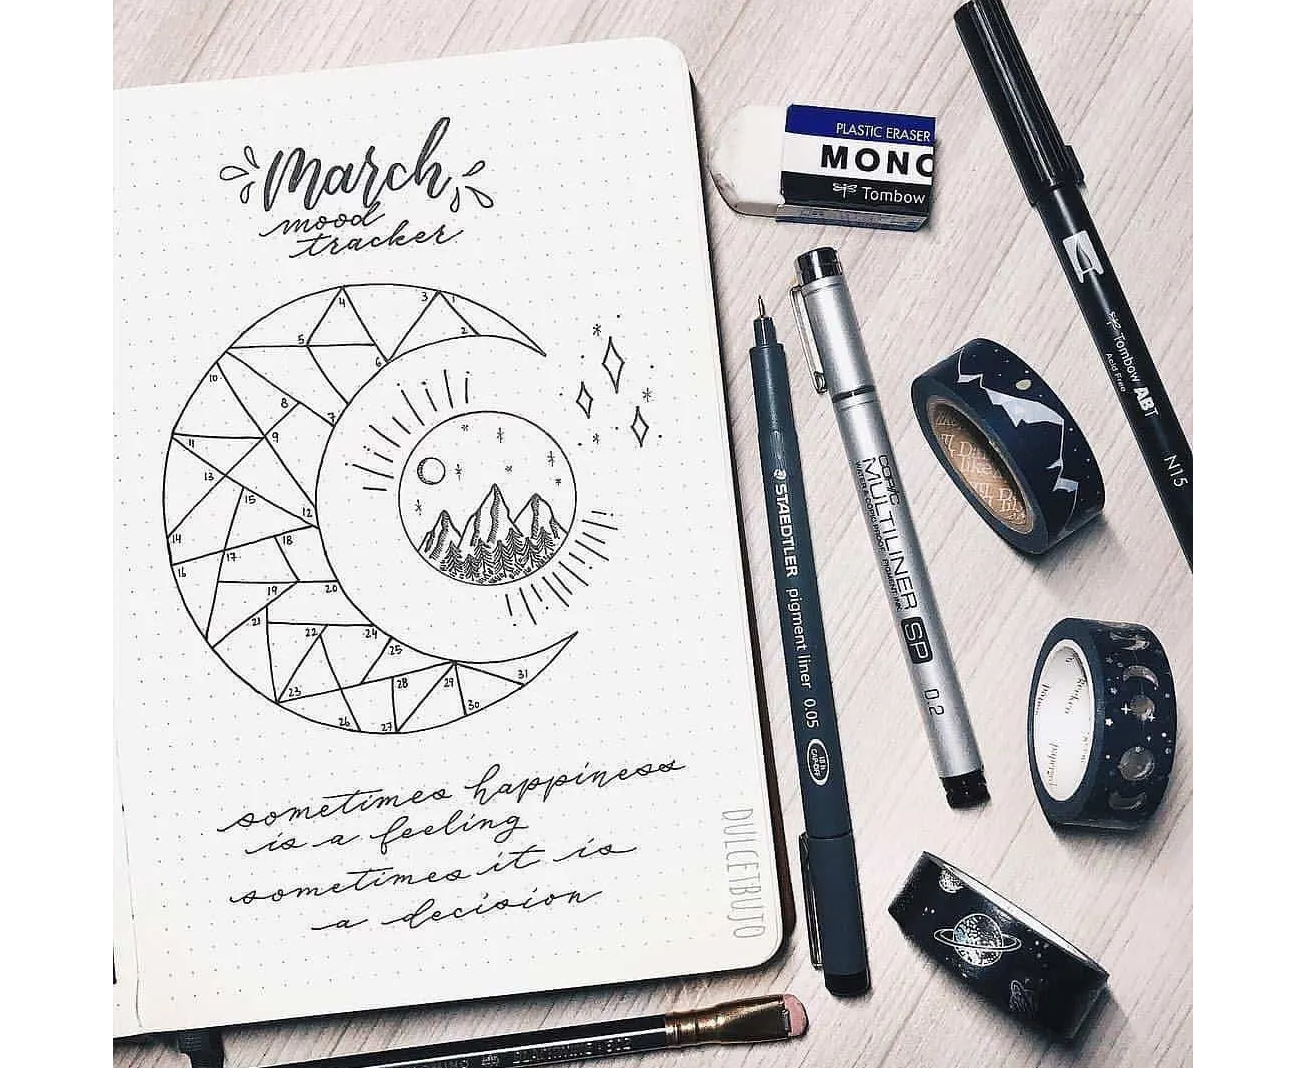 March
mood
tracker
1
2
3
4
5
6
7
8
9
10
11
12
13
14
15
16
17
18
19
20
21
22
23
24
25
26
27
28
29
30
31
sometimes happiness
is a feeling
sometimes it is
a decision
DULCETBUJO
PLASTIC ERASER
MONO
Tombow
Tombow ABT
Acid Free
N15
STAEDTLER pigment liner 0.05
18 h
CAP-OFF
COPIC
MULTILINER SP 0.2
WATER & COPIC PROOF PIGMENT INK